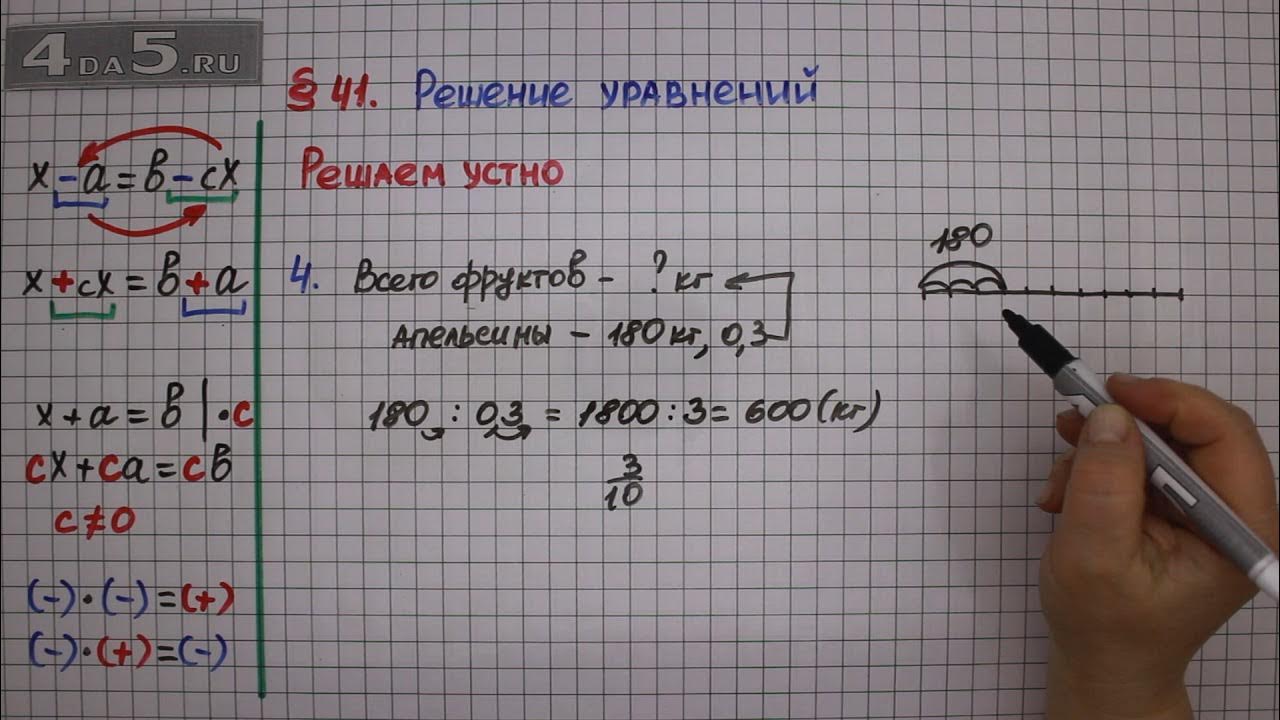 4DA5.RU
§ 41. Решение уравнений
x - a = в - cx
x + cx = в + a
x + a = в | · c
cx + ca = cв
c ≠ 0
(-) · (-) = (+)
(-) · (+) = (-)
Решаем устно
4. Всего фруктов - ? кг
Апельсины - 180 кг, 0,3
180 : 0,3 = 1800 : 3 = 600 (кг)
3/10
180